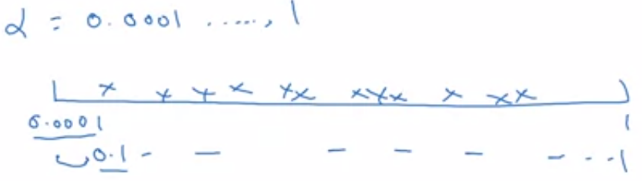 α = 0.0001 ....., 1
x x x x x x x x x x x x
0.0001 1
0.1 - - - - - - - - 1